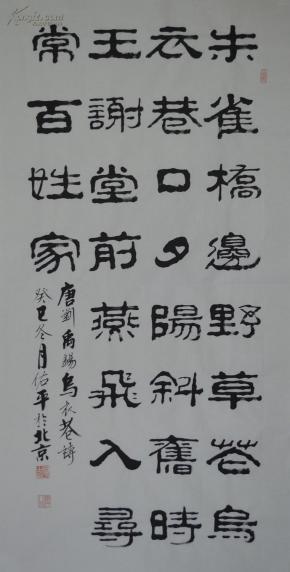 朱雀橋邊野草花烏
衣巷口夕陽斜舊時
王謝堂前燕飛入尋
常百姓家
唐劉禹錫烏衣巷詩
癸巳冬月佑平於北京